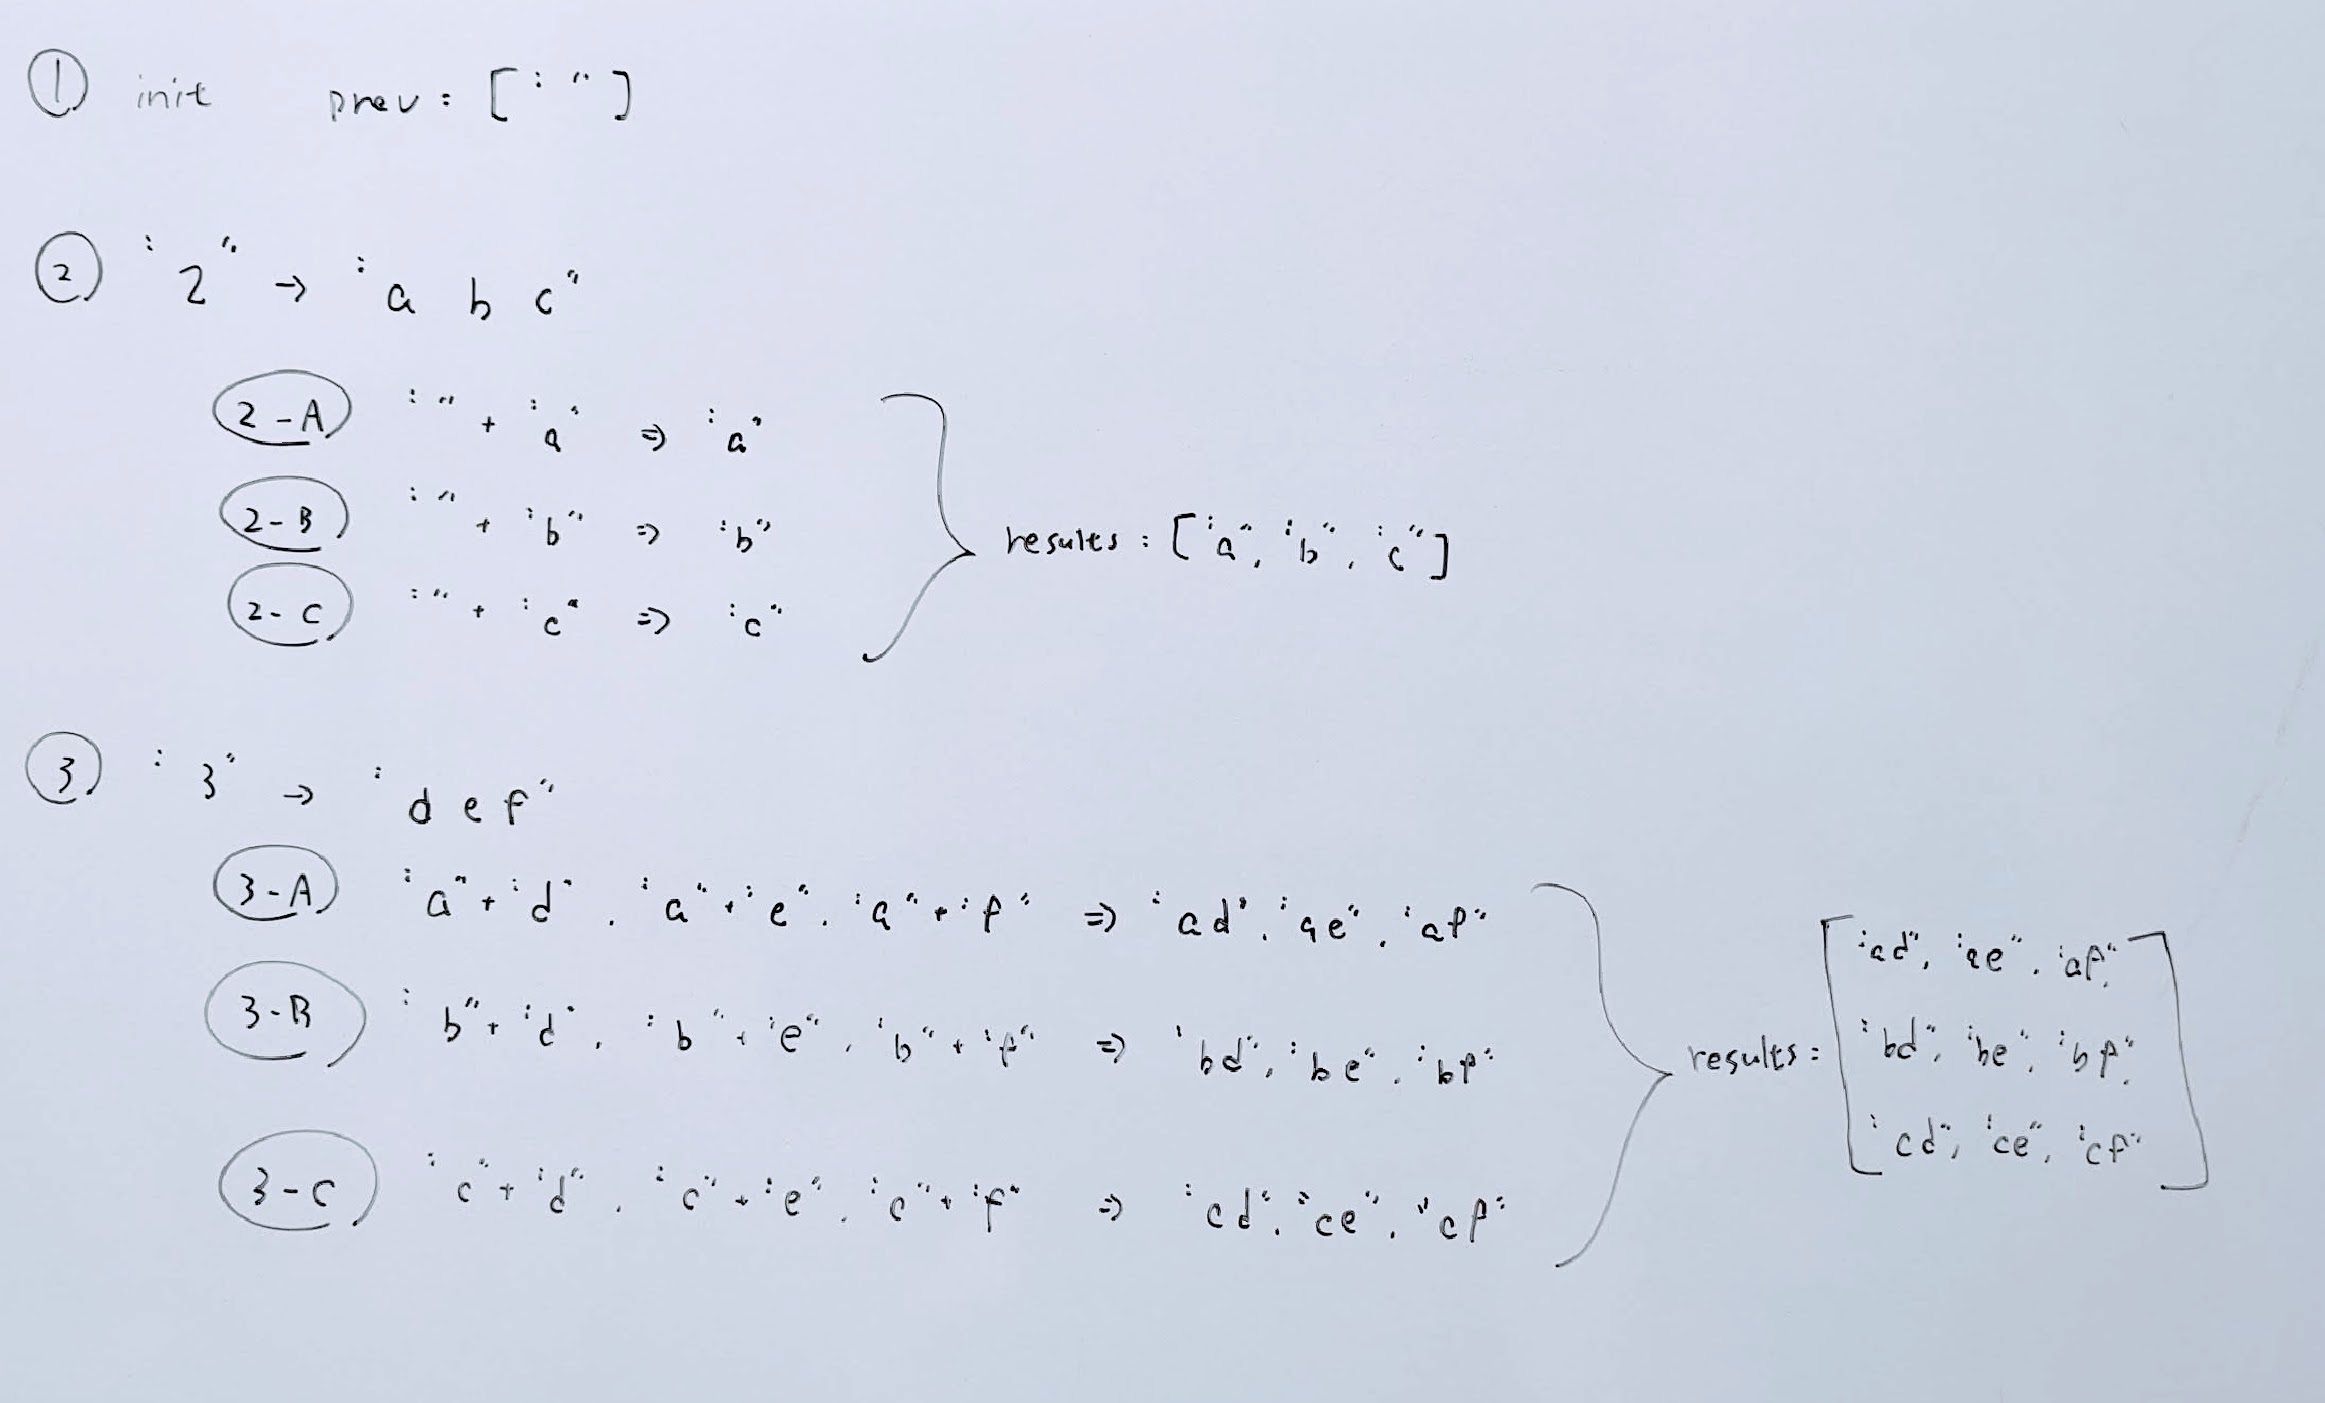 ① init prev: [""]
② "2" → "a b c"
2-A "" + "a" ⇒ "a"
2-B "" + "b" ⇒ "b"
results: ["a", "b", "c"]
2-C "" + "c" ⇒ "c"
③ "3" → "d e f"
3-A "a" + "d", "a" + "e", "a" + "f" ⇒ "ad", "ae", "af"
3-B "b" + "d", "b" + "e", "b" + "f" ⇒ "bd", "be", "bf"
3-C "c" + "d", "c" + "e", "c" + "f" ⇒ "cd", "ce", "cf"
results: ["ad", "ae", "af",
"bd", "be", "bf",
"cd", "ce", "cf"]